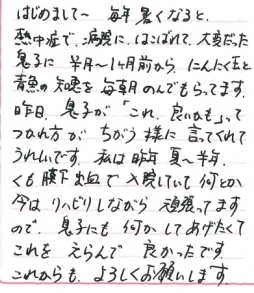 はじめまして〜 毎年 暑くなると、
熱中症で、病院に、はこばれて、大変だった
息子に 半月〜1ヶ月前から、にんにく玉と
青魚の知恵を毎朝のんでもらってます。
昨日、息子が「これ、良いかも」って
つかれ方が ちがう様に 言ってくれて
うれしいです。私は昨年 夏〜半年、
くも膜下出血で入院していて 何とか
今は リハビリしながら 頑張ってます
ので、息子にも 何かしてあげたくて
これを えらんで 良かったです。
これからも、よろしくお願いします。